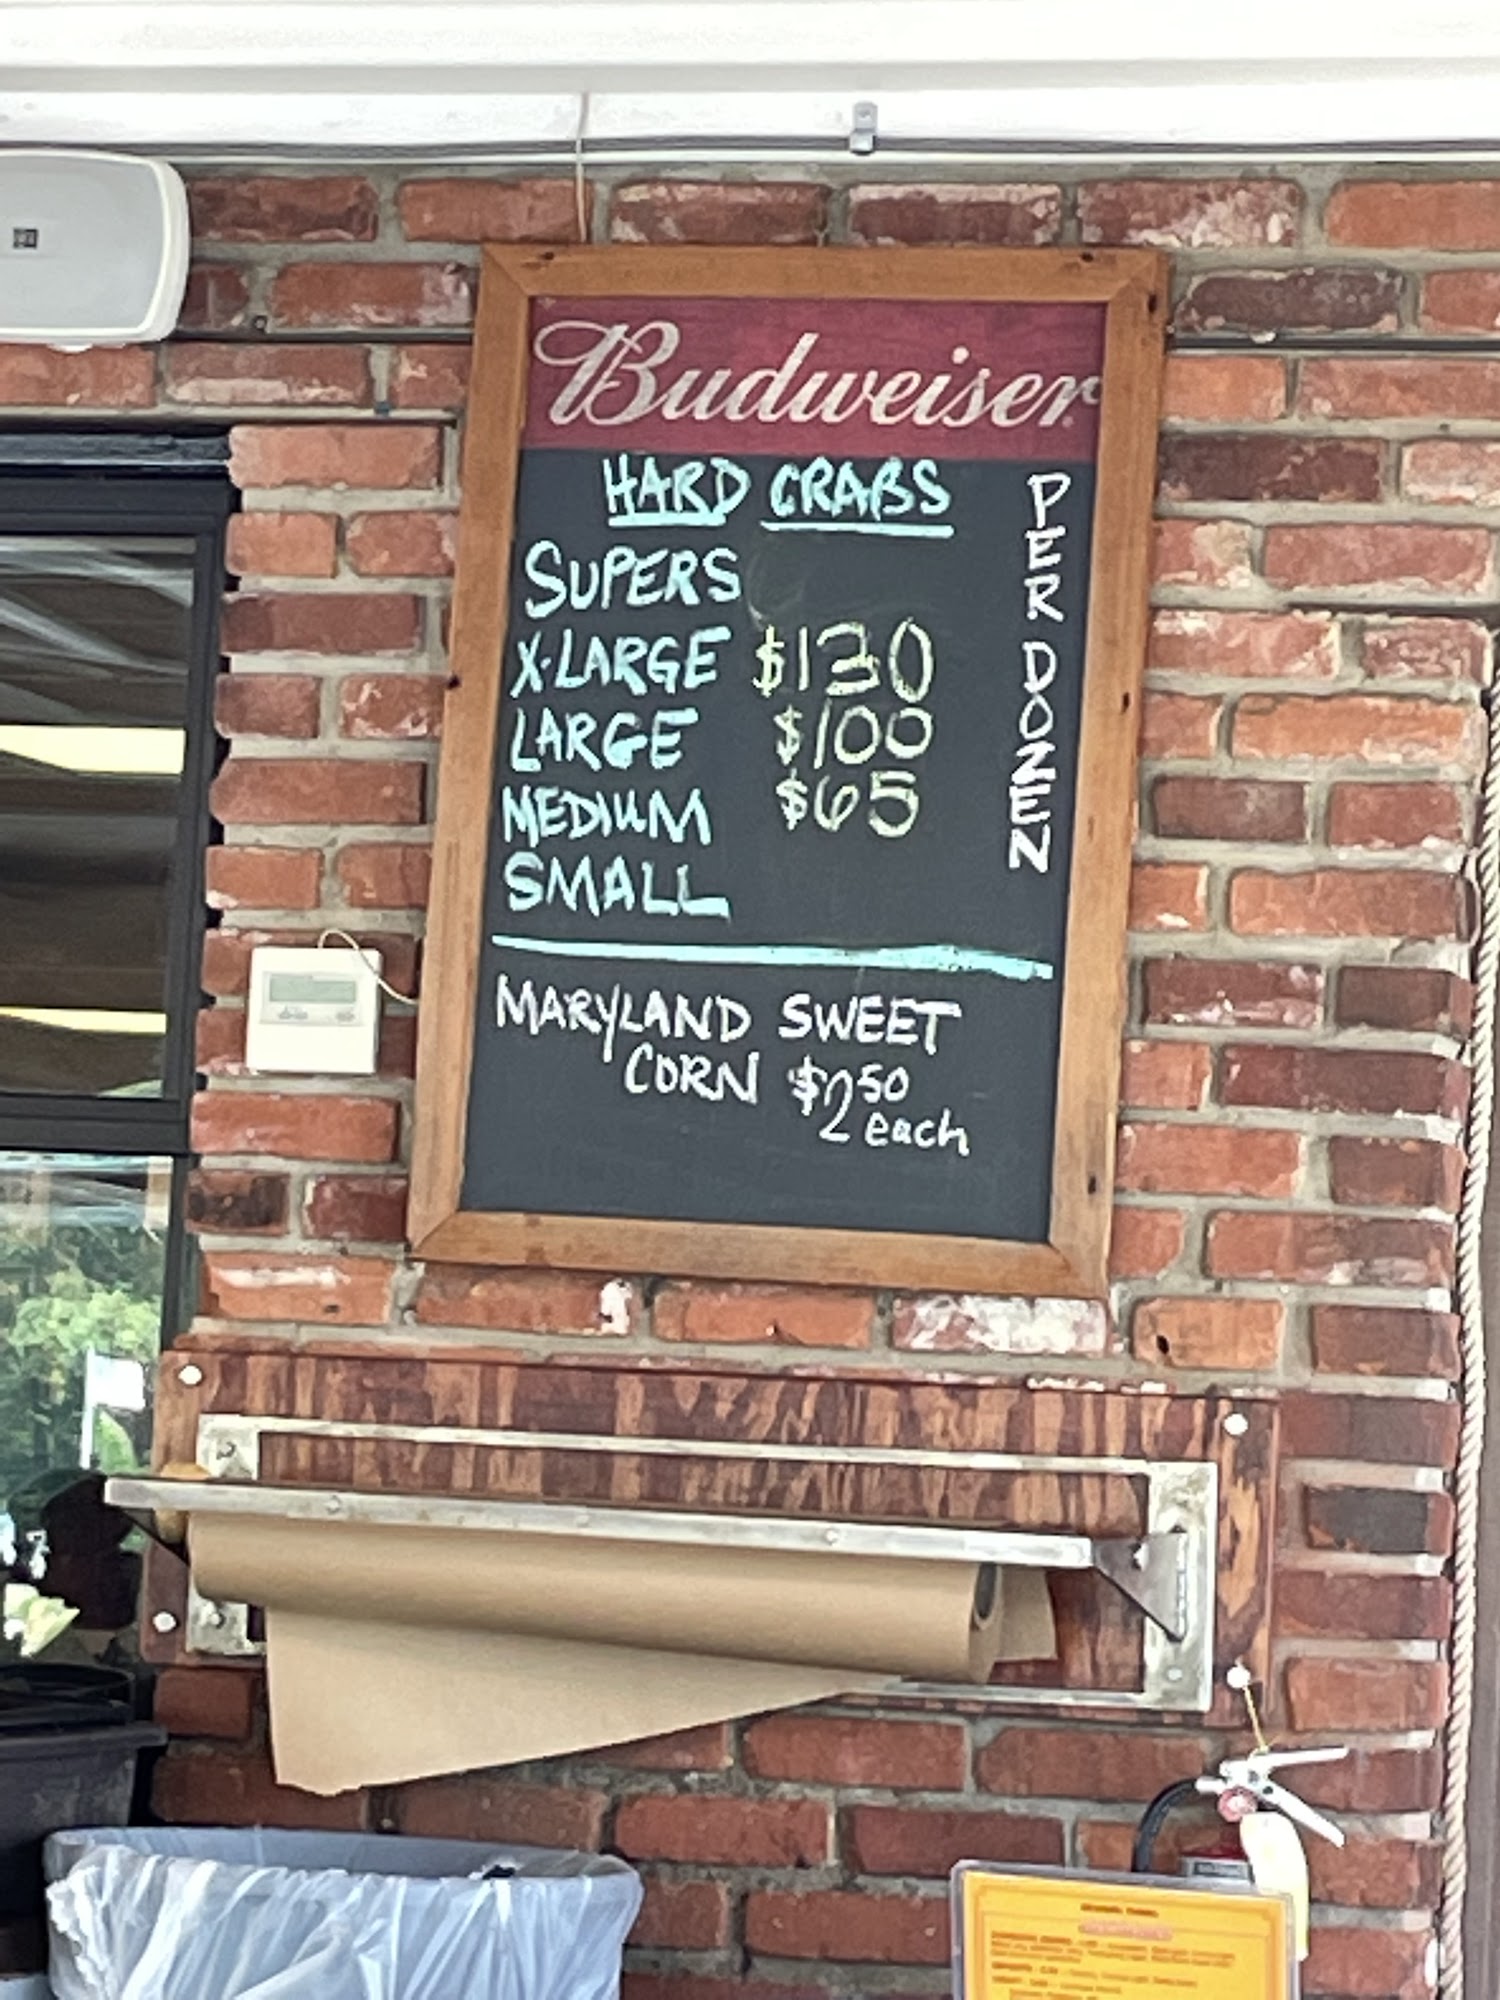 Budweiser
HARD CRABS
SUPERS
X-LARGE $130
LARGE $100
MEDIUM $65
SMALL
PER DOZEN
MARYLAND SWEET
CORN $2.50
each